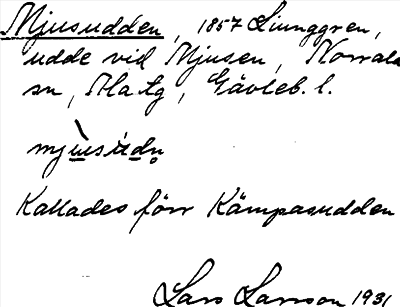 Mjusudden, 1857 Ljunggren,
udde vid Mjusen, Norrala
sn, Ala tg, Gävleb. l.
mjùsùdn̥
Kallades förr Kämpasudden
Lars Larsson 1931